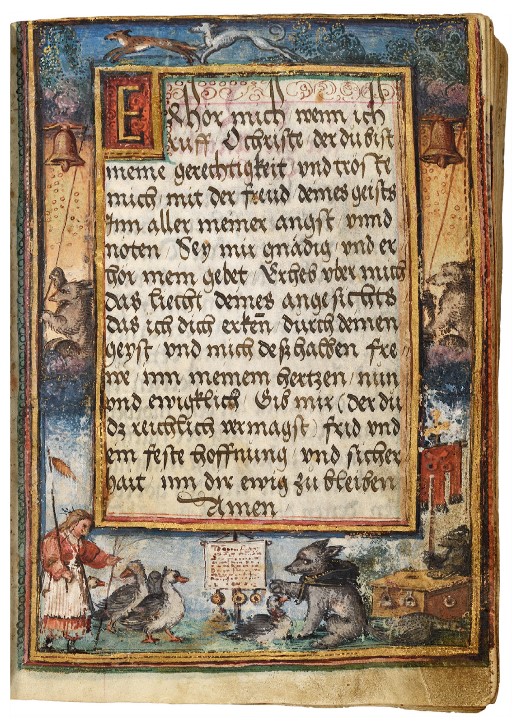 Erhör mich wenn ich
ruff O christe der du bist
meine gerechtigkeit und troste
mich mit der freud deines geists
Inn aller meiner angst vnnd
noten Sey mir gnädig vnd er
hör mein gebet Erheb vber mich
das liecht deines angesichts
das ich dich erkeñ durch deinen
geyst vnd mich deßhalben fre
we inn meinem hertzen nun
vnd ewigklich Gib mir (der du
dz reichlich vermagst) frid vnd
ein feste hoffnung vnd sicher
hait inn dir ewig zu bleiben
Amen